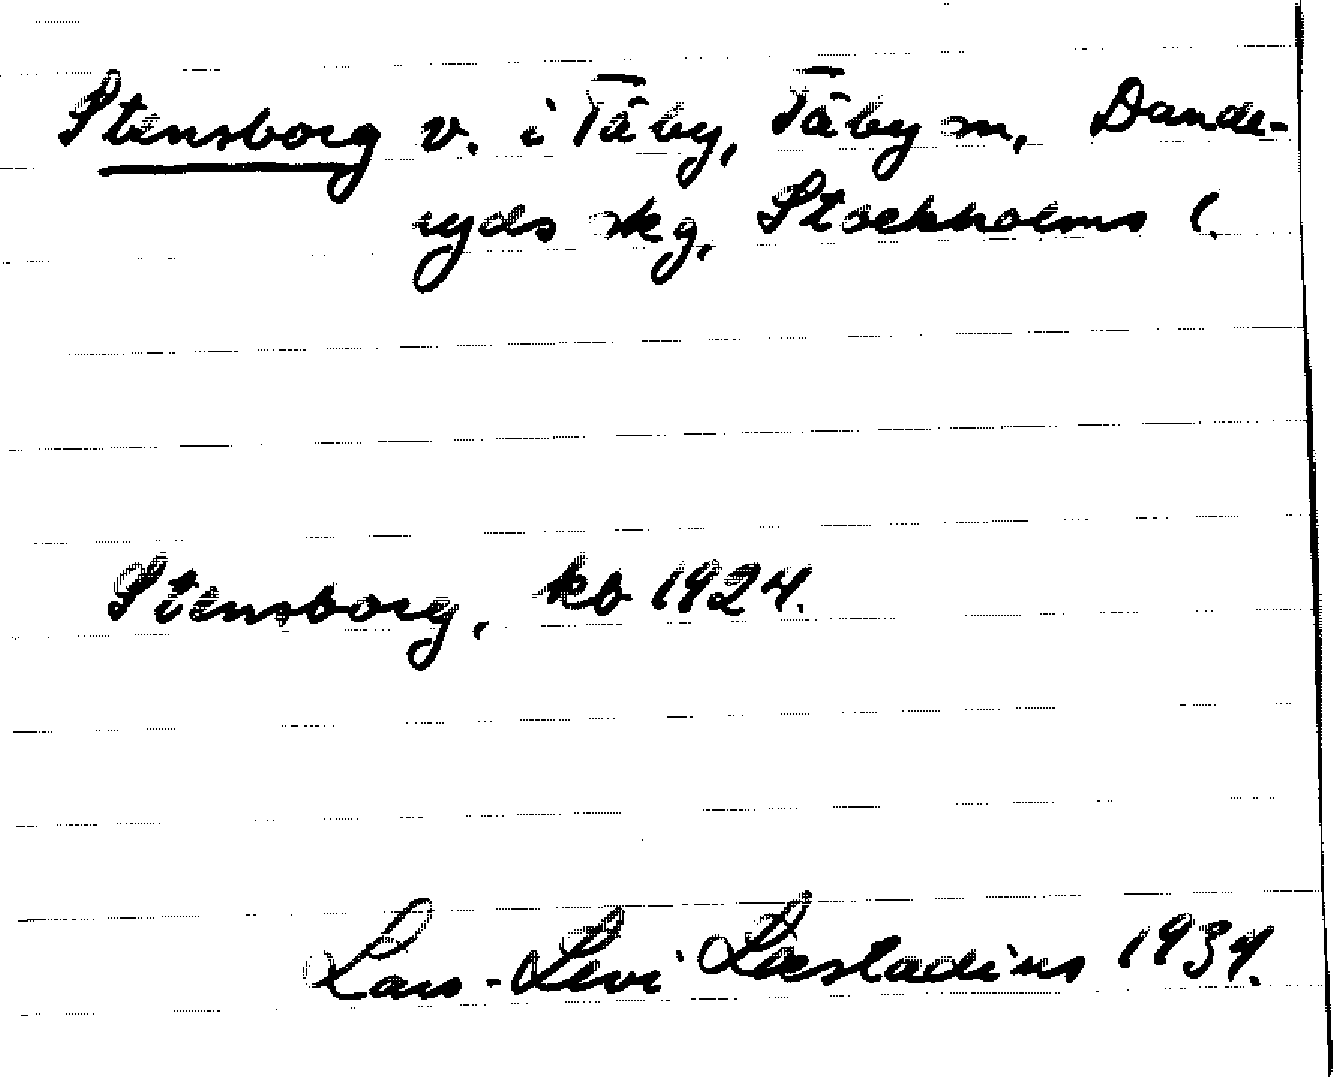 Stensborg v. i Täby, Täby sn, Dande-
ryds skg, Stockholms l.
Stensborg, kb 1924.
Lars-Levi Læstadius 1934.